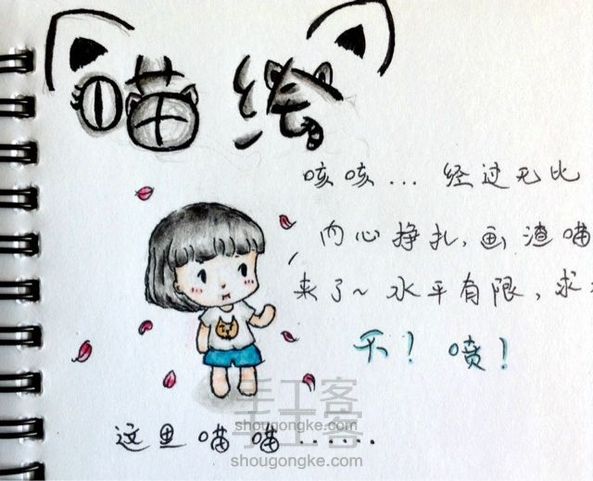 喵绘
咳咳...经过无比
内心挣扎,画渣喵
来了~水平有限,求
不!喷!
这里喵喵......
手工客
shougongke.com
手工客
shougongke.com